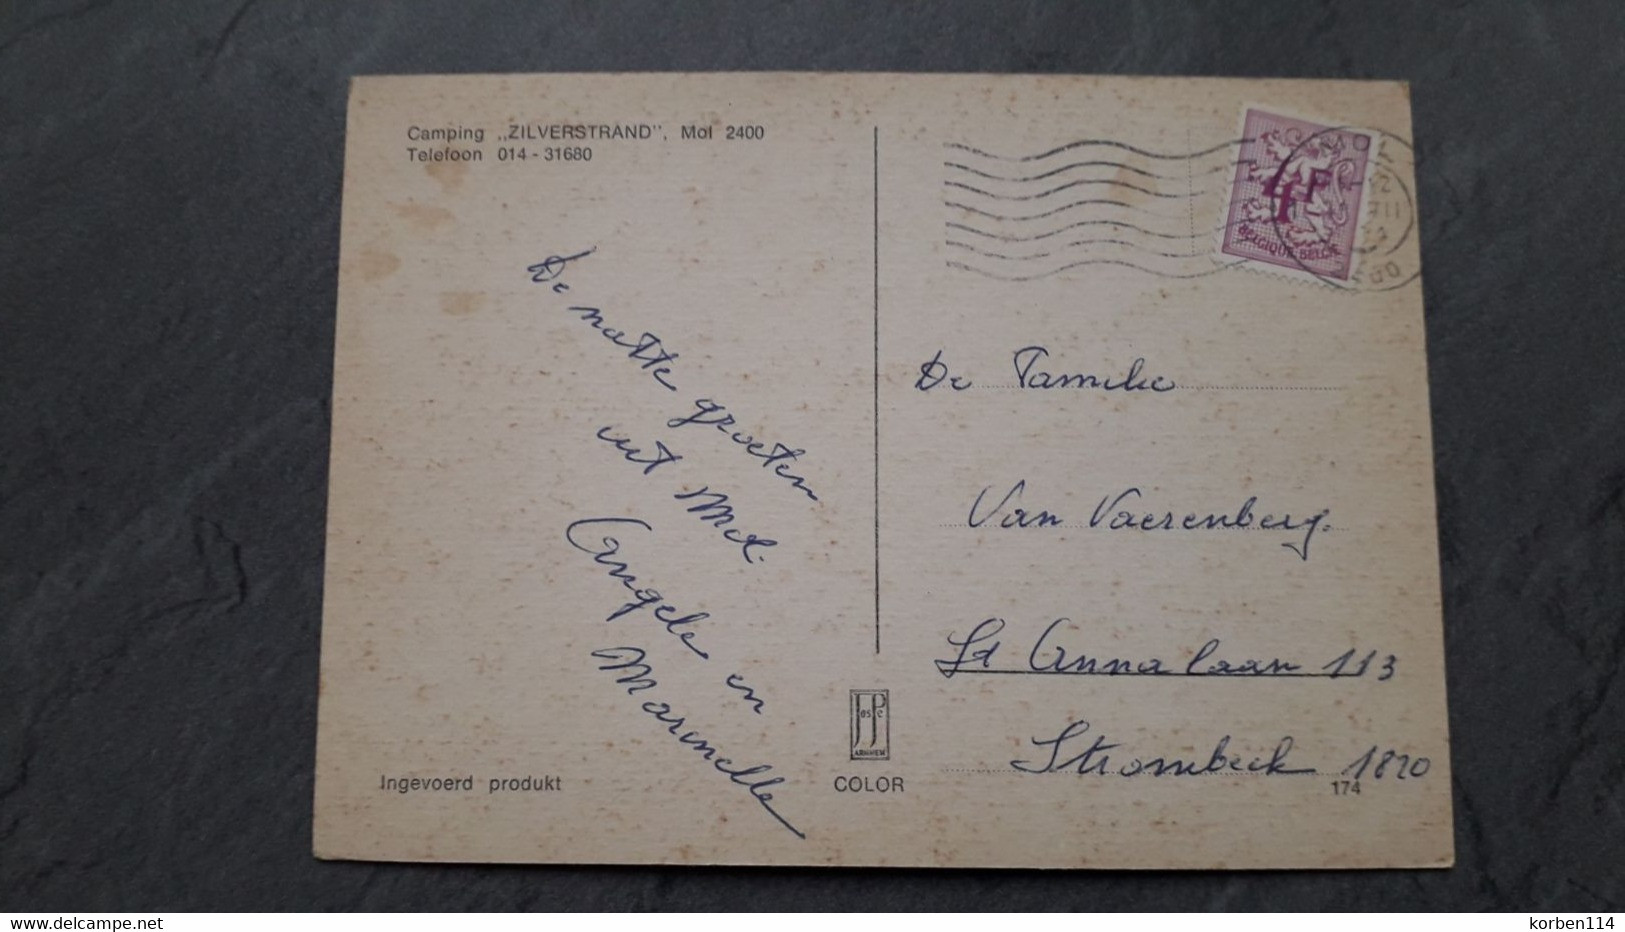 Camping „ZILVERSTRAND”, Mol 2400
Telefoon 014 - 31680
De natte groeten
uit Mol.
Angele en
Marinella
Ingevoerd produkt
JosPe
ARNHEM
COLOR
4F
BELGIQUE-BELGIË
De Familie
Van Vaerenberg.
St Annalaan 113
Strombeek 1820
174
www.delcampe.net
korben114